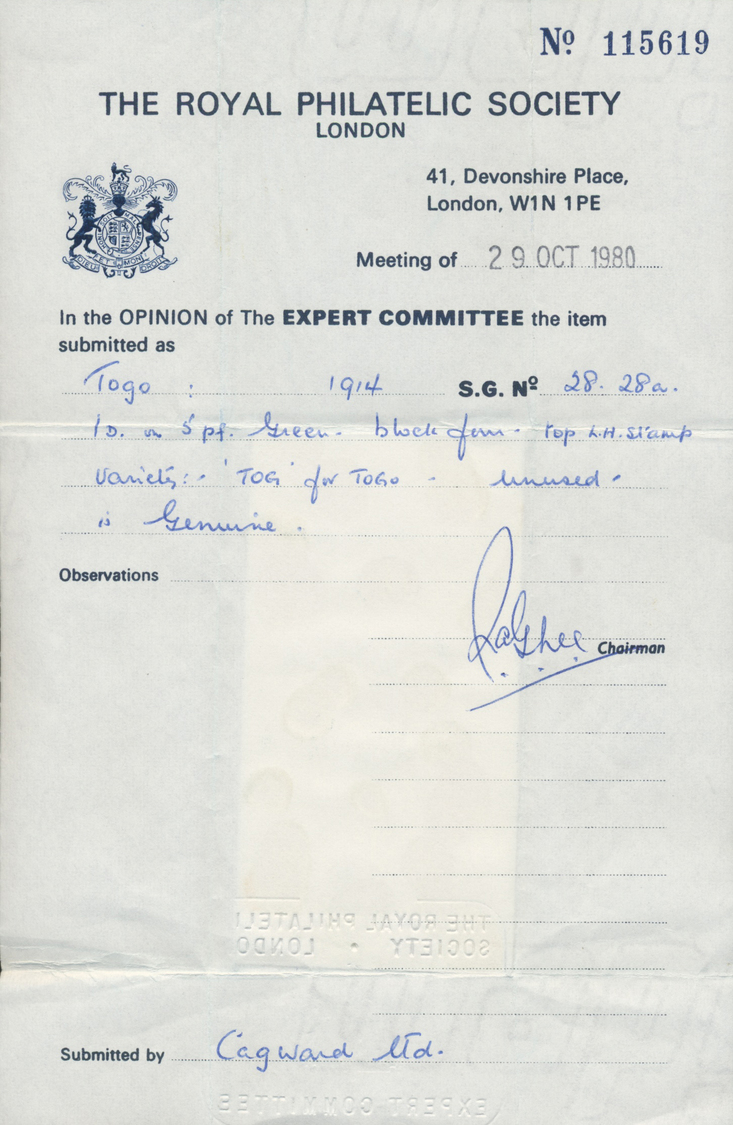 Nº 115619
THE ROYAL PHILATELIC SOCIETY
LONDON
41, Devonshire Place,
London, W1N 1PE
Meeting of 29 OCT 1980
In the OPINION of The EXPERT COMMITTEE the item
submitted as
Togo : 1914 S.G. Nº 28. 28a.
1D. on 5 pf. Green. block four. top L.H. Stamp
Variety:- 'TOG' for TOGO - Unused -
is Genuine.
Observations
Chairman
THE ROYAL PHILATELI
SOCIETY • LONDO
Submitted by Cagward Ltd.
EXPERT COMMITTEE